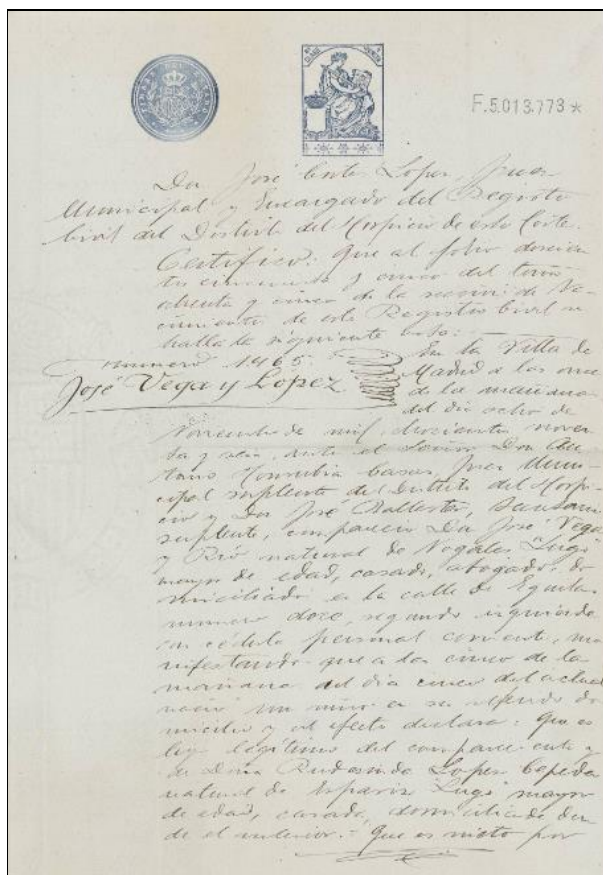 F.5.013.773 *
Don José López, Juez
Municipal y Encargado del Registro
Civil del Distrito del Hospicio de esta Corte.
Certifico: Que al folio doscien
tos cincuenta y cinco del tomo
ochenta y cinco de la sección de Na
cimientos de este Registro Civil se
halla la siguiente acta:
número 1465.
José Vega y López
En la Villa de
Madrid a las once
de la mañana
del día ocho de
Noviembre de mil ochocientos noven
ta y seis, ante el Señor Don
Casas, Juez Muni
cipal suplente del Distrito del Hospi
cio y Don José Ballester, Secretario
suplente, compareció Don José Vega
y natural de Nogales Lugo
mayor de edad, casado, abogado, do
miciliado en la calle de
número doce, segundo izquierda
con cédula personal corriente, ma
nifestando que a las cinco de la
mañana del día cinco del actual
nació un niño en su referido do
micilio y al efecto declara: Que es
hijo legítimo del compareciente y
de Doña Rudesinda López Cepeda
natural de Lugo mayor
de edad, casada, domiciliada don
de el anterior.- Que es nieto por